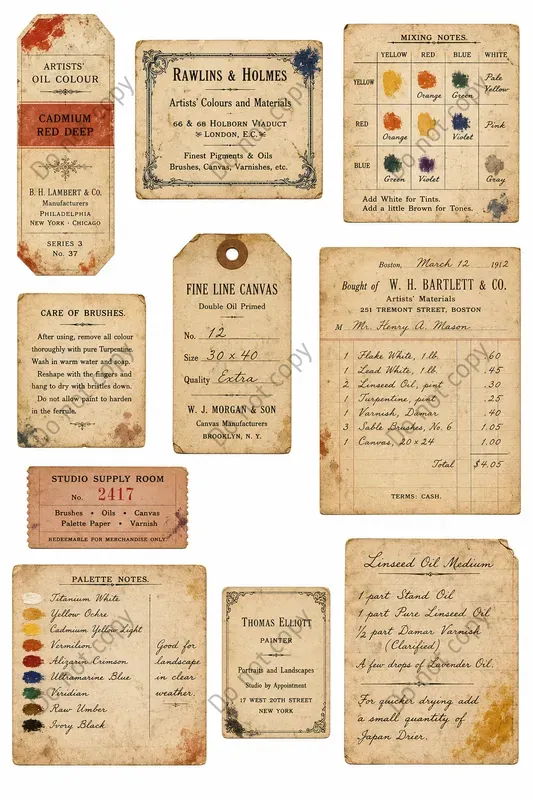 ARTISTS'
OIL COLOUR
CADMIUM
RED DEEP
B. H. LAMBERT & CO.
Manufacturers
PHILADELPHIA
NEW YORK · CHICAGO
SERIES 3
No. 37
RAWLINS & HOLMES
Artists' Colours and Materials
66 & 68 HOLBORN VIADUCT
LONDON, E.C.
Finest Pigments & Oils
Brushes, Canvas, Varnishes, etc.
MIXING NOTES.
YELLOW RED BLUE WHITE
YELLOW Orange Green Pale
Yellow
RED Orange Violet Pink
BLUE Green Violet Gray
Add White for Tints.
Add a little Brown for Tones.
CARE OF BRUSHES.
After using, remove all colour
thoroughly with pure Turpentine.
Wash in warm water and soap.
Reshape with the fingers and
hang to dry with bristles down.
Do not allow paint to harden
in the ferrule.
FINE LINE CANVAS
Double Oil Primed
No. 12
Size 30 x 40
Quality Extra
W. J. MORGAN & SON
Canvas Manufacturers
BROOKLYN, N. Y.
Boston, March 12 1912
Bought of W. H. BARTLETT & CO.
Artists' Materials
251 TREMONT STREET, BOSTON
M Mr. Henry A. Mason
1 Flake White, 1 lb. .60
1 Lead White, 1 lb. .45
2 Linseed Oil, pint .30
1 Turpentine, pint .25
1 Varnish, Damar .40
3 Sable Brushes, No. 6 1.05
1 Canvas, 20 x 24 1.00
Total $4.05
TERMS: CASH.
STUDIO SUPPLY ROOM
No. 2417
Brushes • Oils • Canvas
Palette Paper • Varnish
REDEEMABLE FOR MERCHANDISE ONLY.
PALETTE NOTES.
Titanium White
Yellow Ochre
Cadmium Yellow Light
Vermilion
Alizarin Crimson
Ultramarine Blue
Viridian
Raw Umber
Ivory Black
Good for
landscape
in clear
weather.
THOMAS ELLIOTT
PAINTER
Portraits and Landscapes
Studio by Appointment
17 WEST 20TH STREET
NEW YORK
Linseed Oil Medium
1 part Stand Oil
1 part Pure Linseed Oil
½ part Damar Varnish
(Clarified)
A few drops of Lavender Oil.
For quicker drying add
a small quantity of
Japan Drier.
Do not copy
Do not copy
Do not copy
Do not copy
Do not copy
Do not copy
Do not copy
Do not copy
Do not copy